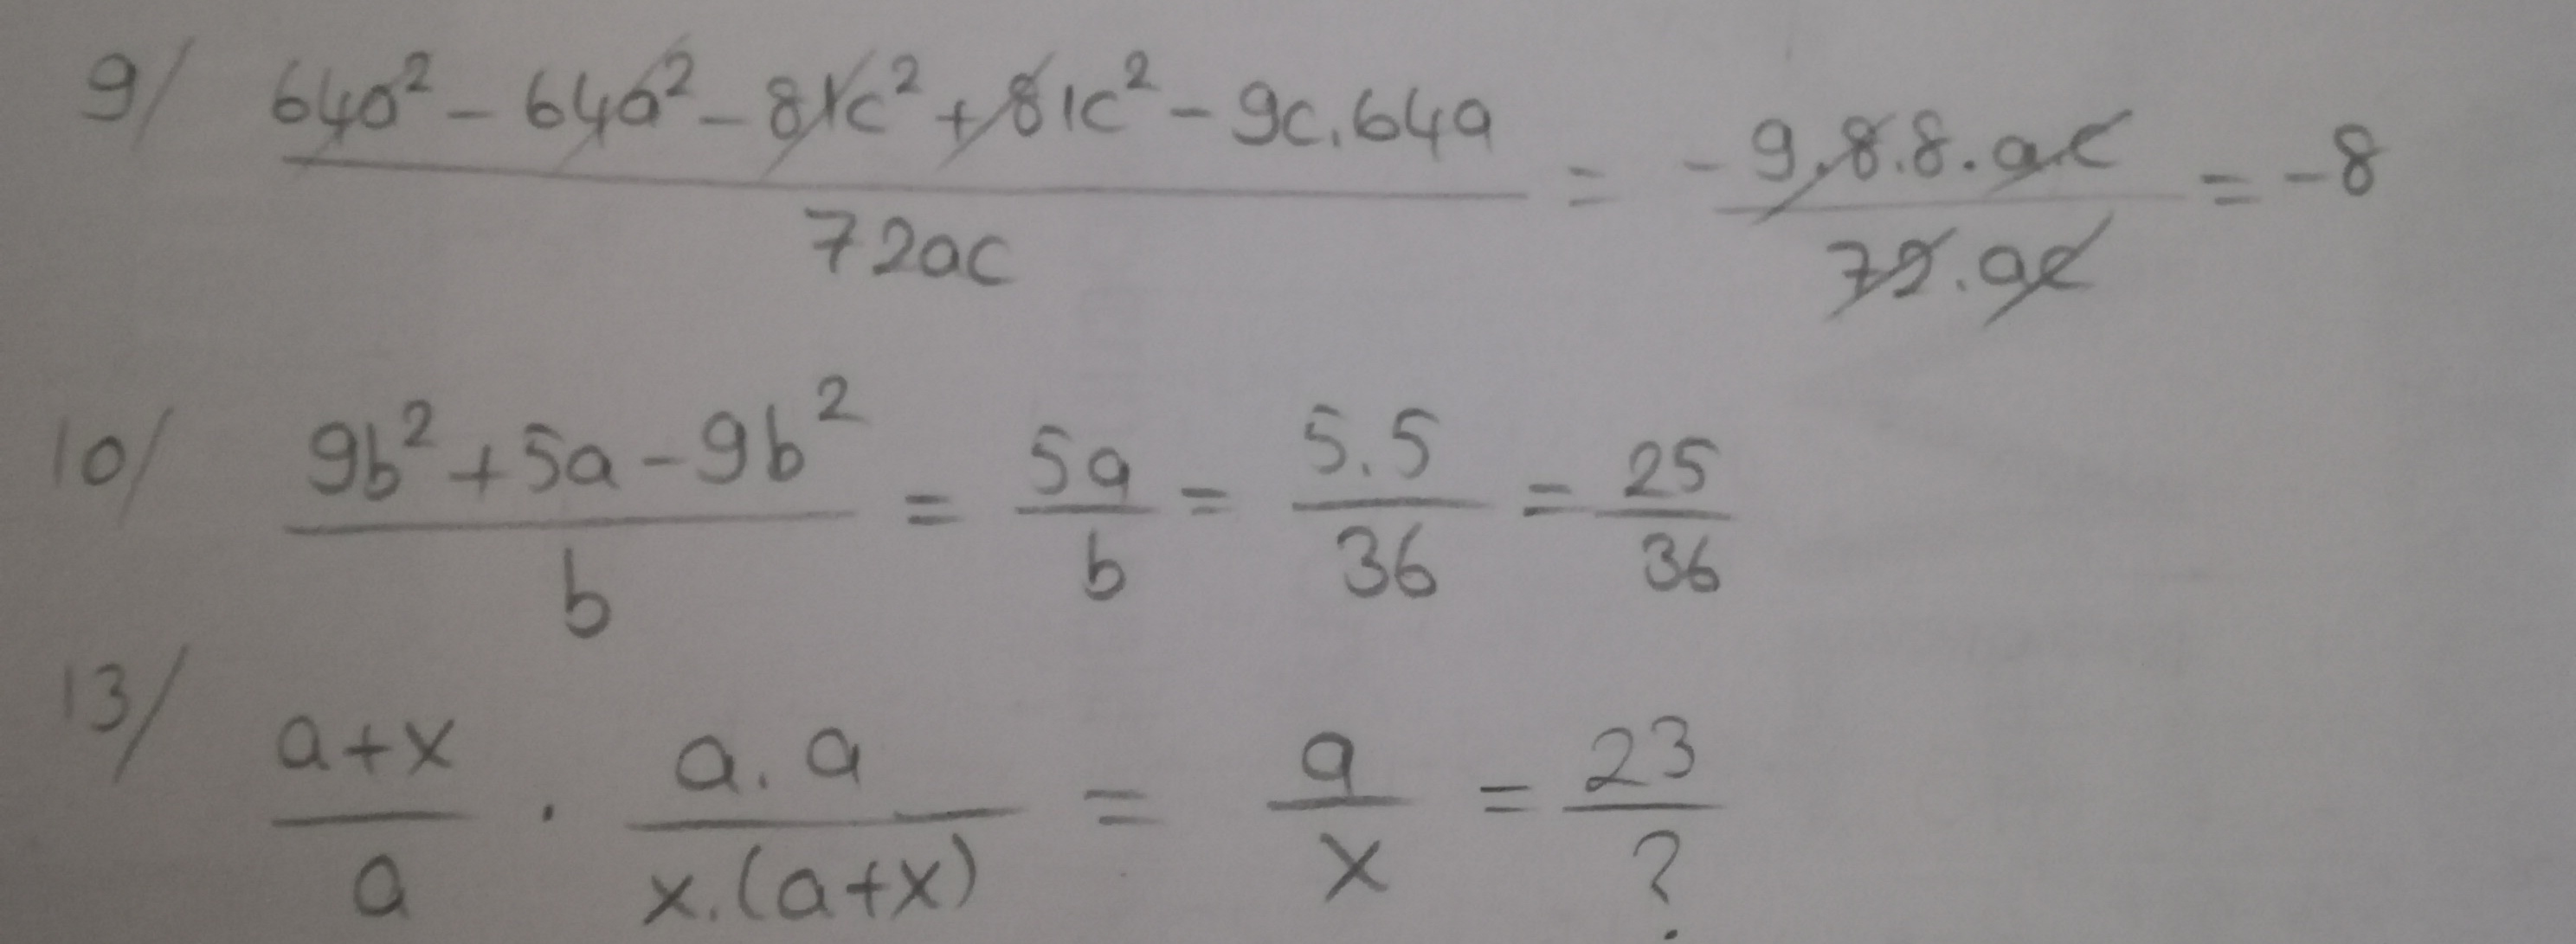 9/ (64a² - 64a² - 81c² + 81c² - 9c.64a) / 72ac = (-9.8.8.a.c) / (72.ac) = -8
10/ (9b² + 5a - 9b²) / b = 5a / b = 5.5 / 36 = 25 / 36
13/ (a+x) / a . (a.a) / (x.(a+x)) = a / x = 23 / ?